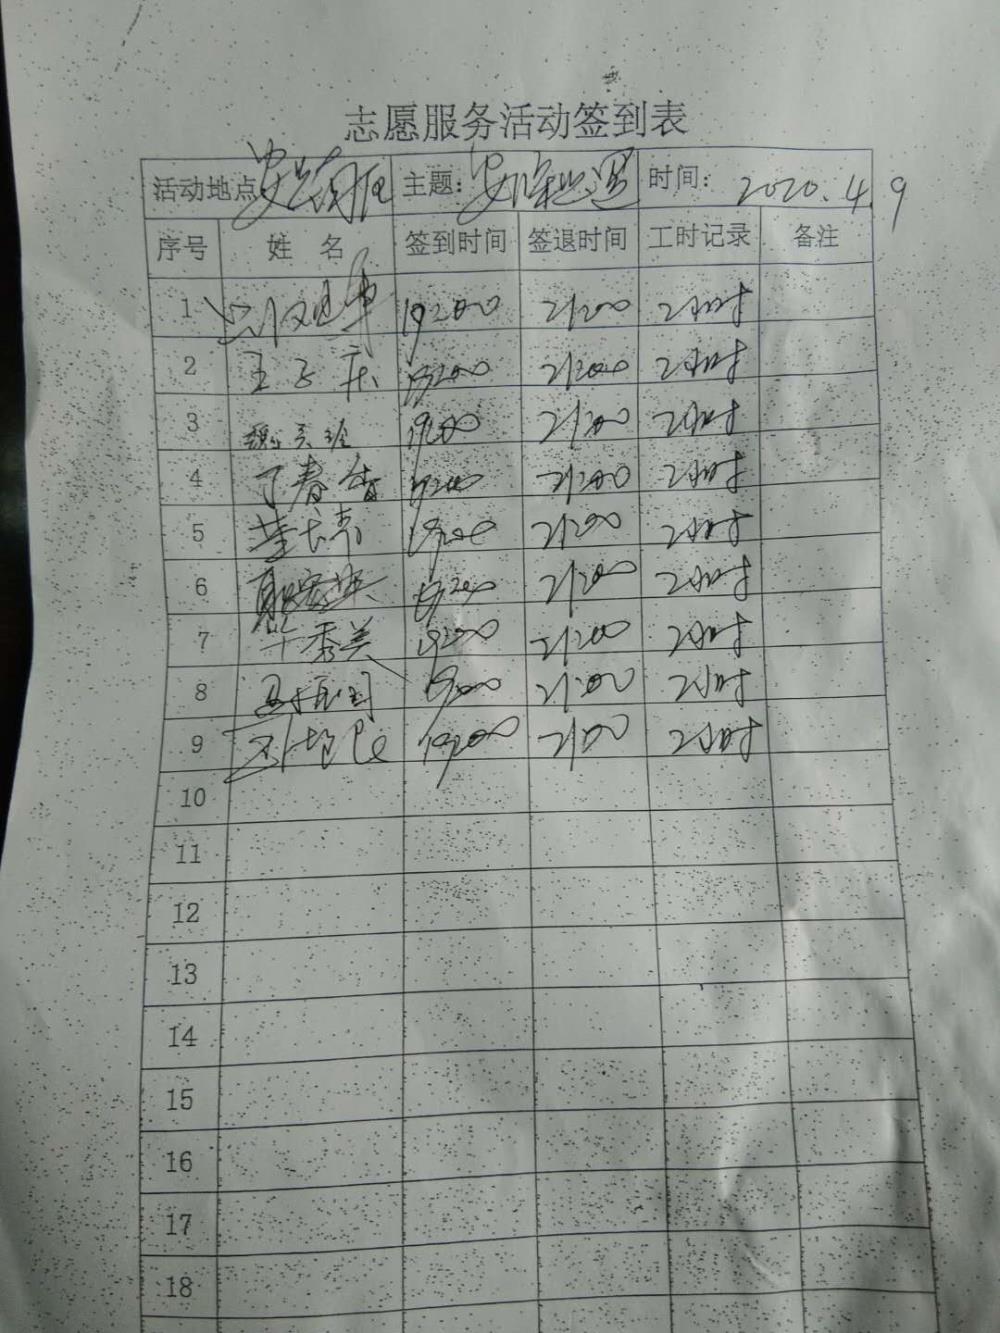 志愿服务活动签到表
活动地点 主题: 时间: 2020.4.9
序号 姓 名 签到时间 签退时间 工时记录 备注
1 19:00 21:00 2小时
2 王子庆 19:00 21:00 2小时
3 19:00 21:00 2小时
4 丁春香 19:00 21:00 2小时
5 19:00 21:00 2小时
6 19:00 21:00 2小时
7 华秀美 19:00 21:00 2小时
8 19:00 21:00 2小时
9 19:00 21:00 2小时
10
11
12
13
14
15
16
17
18